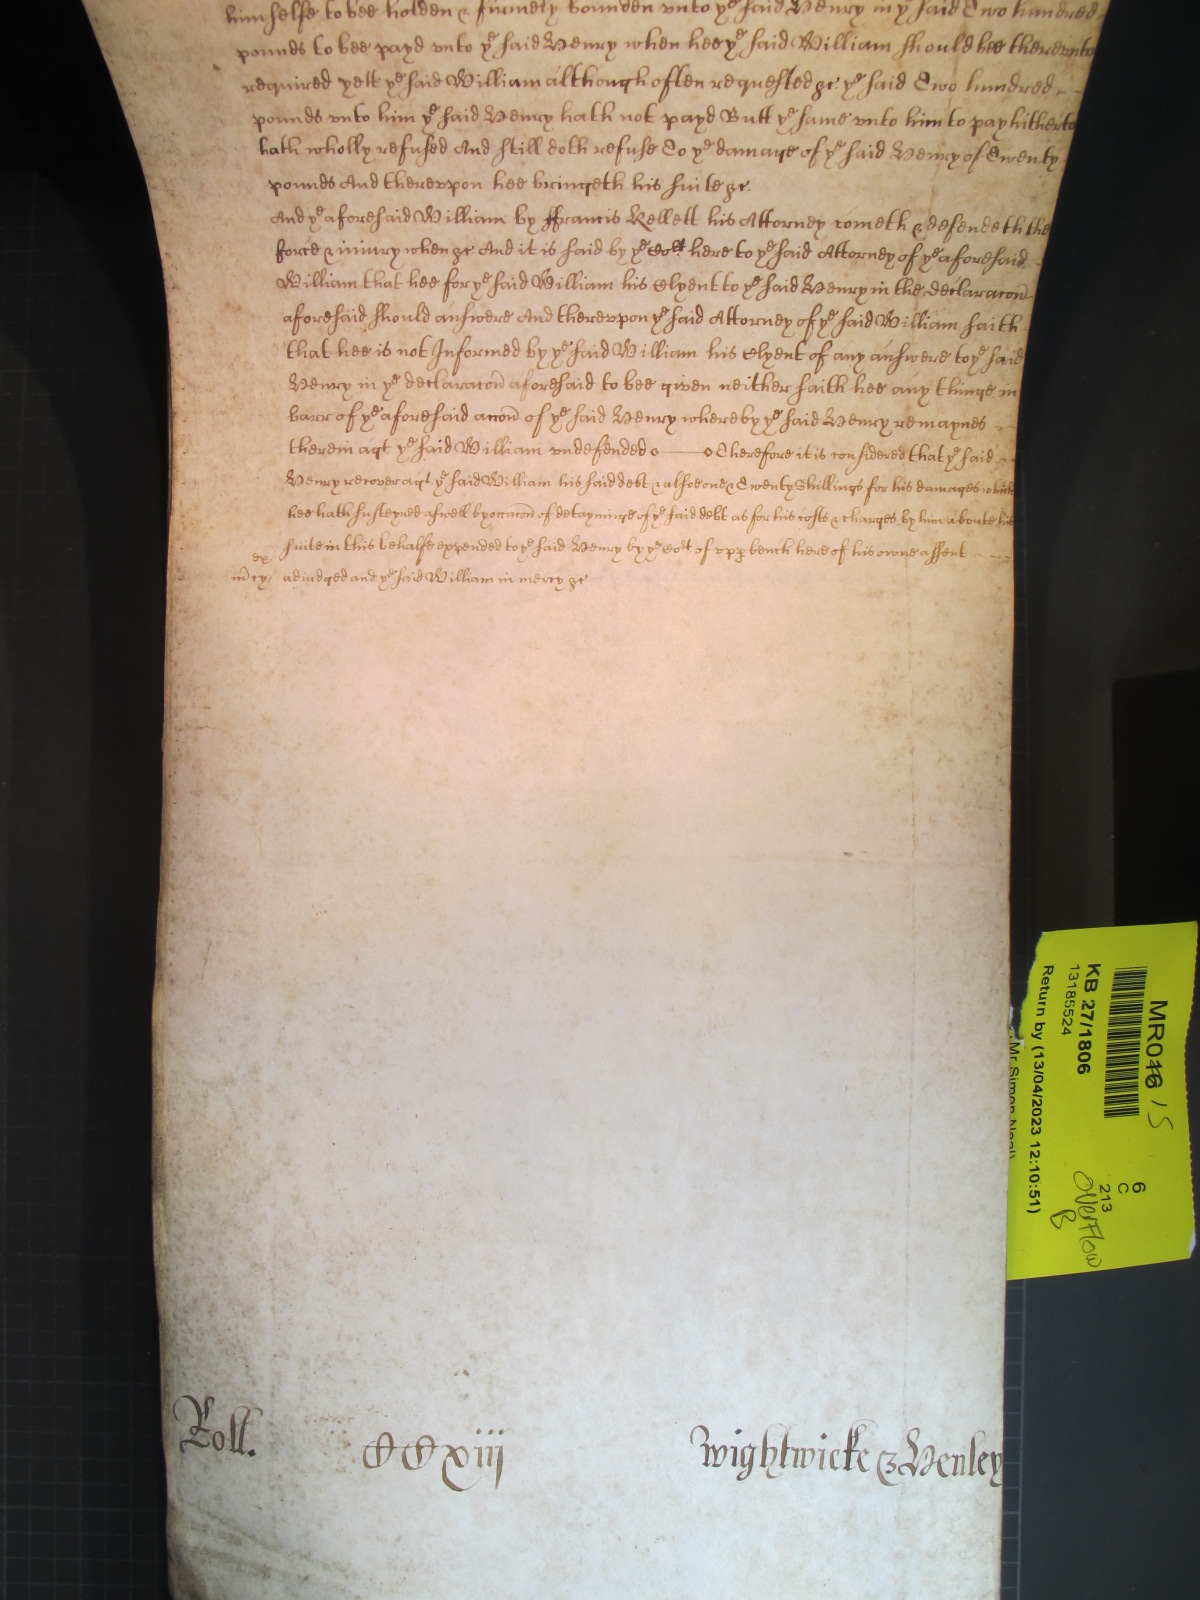 himselfe to bee holden & firmely bounden vnto ye said Henry in ye said Two hundred
pounds to bee payd vnto ye said Henry when hee ye said William should bee therevnto
required yett ye said William although often requested &c ye said Two hundred
pounds vnto him ye said Henry hath not payd Butt ye same vnto him to pay hitherto
hath wholly refused And still doth refuse To ye damage of ye said Henry of Twenty
pounds And therevpon hee bringeth his suite &c
And ye aforesaid William by ffrancis Kellett his Attorney cometh & defendeth the
force & iniury when &c And it is said by ye Cort here to ye said Attorney of ye aforesaid
William that hee for ye said William his Clyent to ye said Henry in the declaracon
aforesaid should answere And therevpon ye said Attorney of ye said William saith
that hee is not Informed by ye said William his Clyent of any answere to ye said
Henry in ye declaracon aforesaid to bee given neither saith hee any thinge in
barr of ye aforesaid accon of ye said Henry whereby ye said Henry remaynes
therein agt ye said William vndefended Therefore it is considered that ye said
Henry recover agt ye said William his said debt & alsoe one & Twenty Shillings for his damages which
hee hath susteyned aswell by occacon of detayninge of ye said debt as for his costs & charges by him aboute his
suite in this behalfe expended to ye said Henry by ye Cort of vpp bench here of his owne assent
mcy adiudged and ye said William in mercy &c
Roll. CCxiii Wightwicke & Henley
MR046 15
KB 27/1806
13185524
Return by (13/04/2023 12:10:51)
6
C
213
Overflow
B